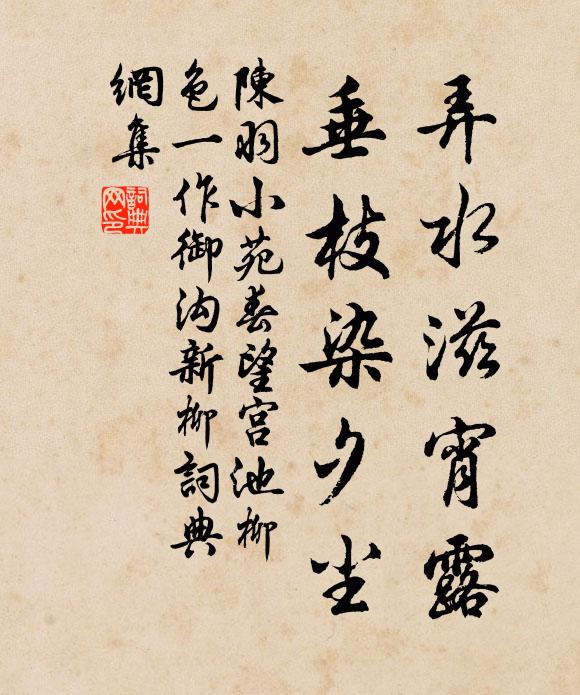 弄水滋宵露
垂枝染夕尘
陳羽小苑春望宮池柳
色一作御沟新柳詞典
網集
詞典
网印